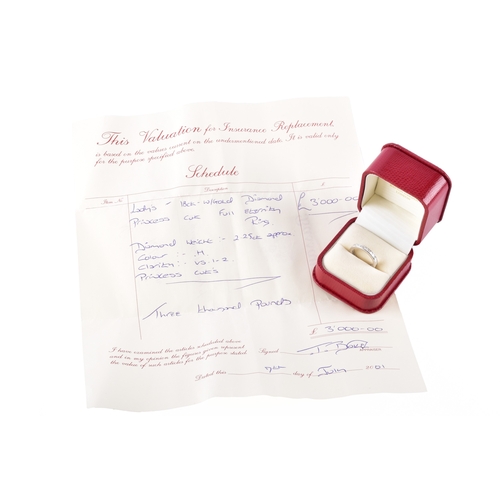 This Valuation for Insurance Replacement,
is based on the values current on the undermentioned date. It is valid only
for the purpose specified above.
Schedule
Item No. Description £
Ladys 18ct W/Gold Diamond £ 3000-00
Princess Cut Full Eternity
Ring
Diamond Weight :- 2.25ct approx
Color :- H
Clarity :- VS 1-2
Princess Cuts
Three thousand Pounds
£ 3'000-00
I have examined the articles scheduled above
and in my opinion the figures given represent
the value of such articles for the purpose stated.
Signed
Dated this 7th day of July